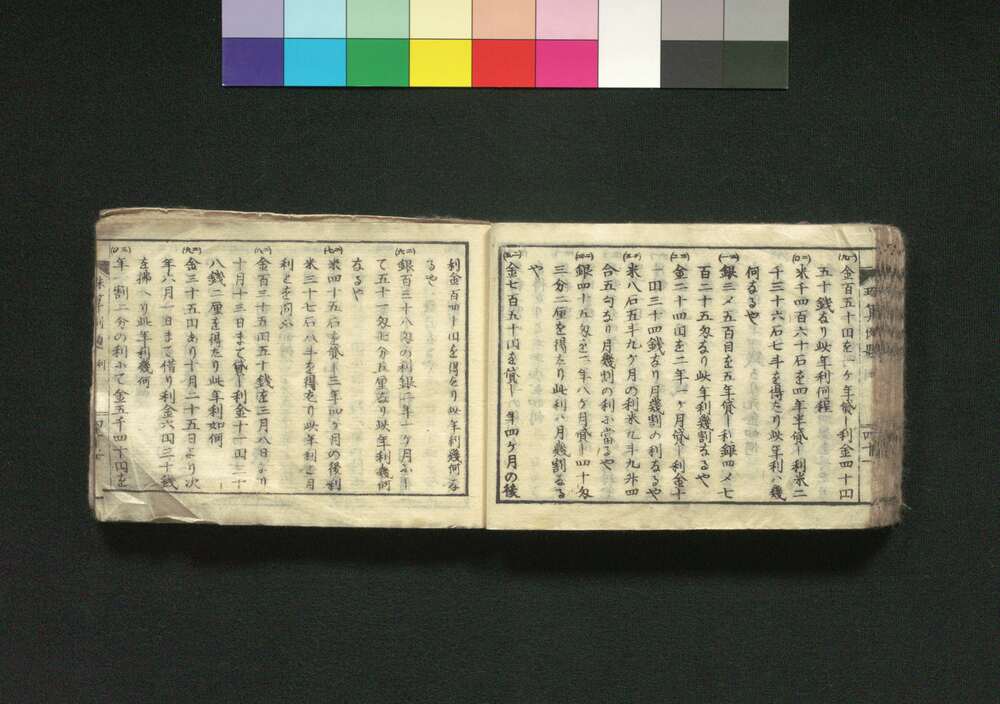 (一九)金百五十円を一ケ年半貸し利金四十円
五十銭なり此年利何程
(二〇)米千四百六十石を四年半貸し利米二
千三十六石七斗を得たり此年利ハ幾
何なるや
(二一)銀三メ五百目を五年貸し利銀四メ七
百二十五匁なり此年利幾割なるや
(二二)金二十四円を二年一ケ月貸し利金十
一円三十四銭なり月幾割の利なるや
(二三)米八石五斗九ケ月の利米九斗九升四
合五勺なり月幾割の利に當るや
(二四)銀四十五匁を一年八ケ月貸し四十匁
三分二厘を得たり此利ハ月幾割なる
や
(二五)金七百五十円を貸し一年四ケ月の後
利金百四十円を得たり此年利幾何な
るや
(二六)銀百三十八匁の利銀二年一ケ月にし
て五十一匁七分五厘なり此年利幾何
なるや
(二七)米四十五石を貸し三年四ケ月の後利
米三十七石八斗を得たり此年利と月
利とを問ふ
(二八)金百三十五円五十銭を三月八日より
十月十三日まて貸し利金十一円三十
八銭二厘を得たり此年利如何
(二九)金三十五円あり十月二十五日より次
年六月一日まて借り利金六円三十銭
を拂へり此年利幾何
(三〇)年一割二分の利にて金五千四十円を